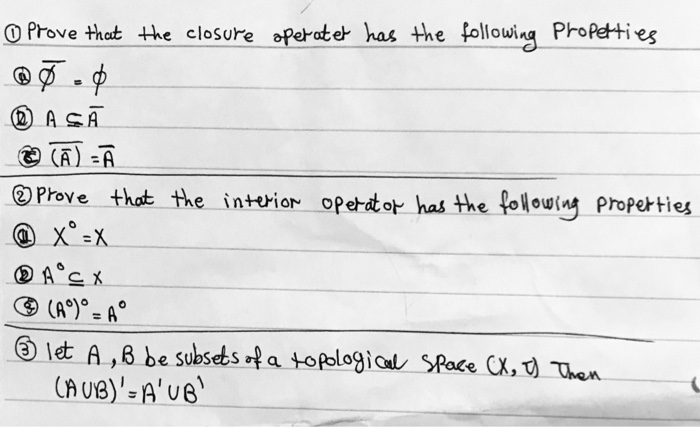 ① Prove that the closure operater has the following Properties
ⓐ ϕ̅ = ϕ
ⓑ A ⊆ A̅
ⓒ (A̅)̅ = A̅
② Prove that the interior operator has the following properties
ⓐ X° = X
ⓑ A° ⊆ X
ⓒ (A°)° = A°
③ let A, B be subsets of a topological space (X, τ) Then
(A∪B)' = A' ∪ B'